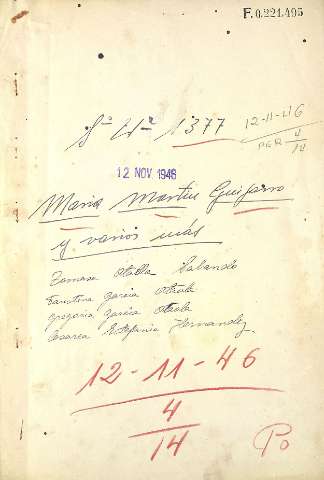 F.0.221.495
Sº Uº 1377
12-11-46
PER 4
14
12 NOV 1946
Maria Martin Guijarro
y varios más
Tomasa Otalla Rabanedo
Faustina Garcia Otaola
Gregoria Garcia Otaola
Cesarea Estefania Hernandez
12-11-46
4
14
Po